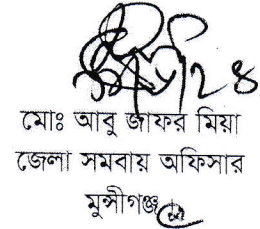 মোঃ আবু জাফর মিয়া
জেলা সমবায় অফিসার
মুন্সীগঞ্জ